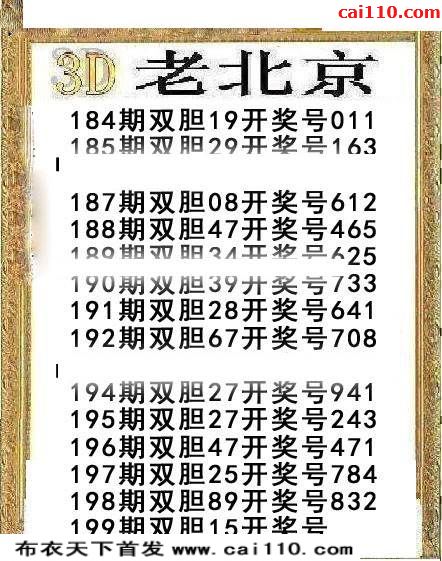 cai110.com
3D 老北京
184期双胆19开奖号011
185期双胆29开奖号163
187期双胆08开奖号612
188期双胆47开奖号465
189期双胆34开奖号625
190期双胆39开奖号733
191期双胆28开奖号641
192期双胆67开奖号708
194期双胆27开奖号941
195期双胆27开奖号243
196期双胆47开奖号471
197期双胆25开奖号784
198期双胆89开奖号832
199期双胆15开奖号
布衣天下首发 www.cai110.com